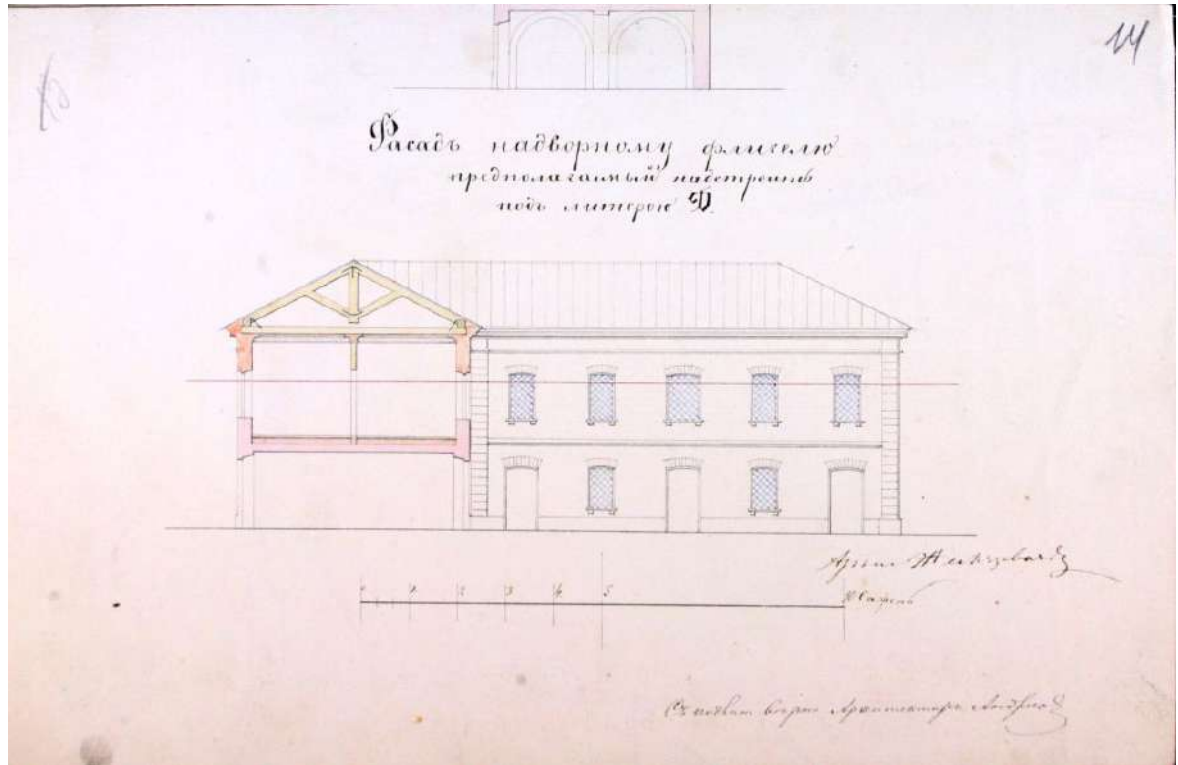 14
Фасадъ надворному флигелю
предполагаемый надстроить
подъ литерою Ф.
0 1 2 3 4 5 10 Сажень
Архит.
Съ подлин. вѣрно Архитекторъ